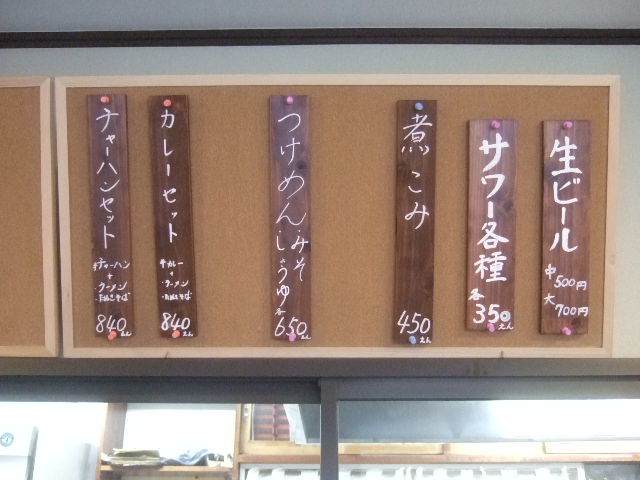 生ビール
中 500円
大 700円
サワー各種
各 350えん
煮こみ
450えん
つけめん みそ しょうゆ
各 650えん
カレーセット
半カレー
+
・ラーメン
840えん
チャーハンセット
半チャーハン
+
・ラーメン
840えん